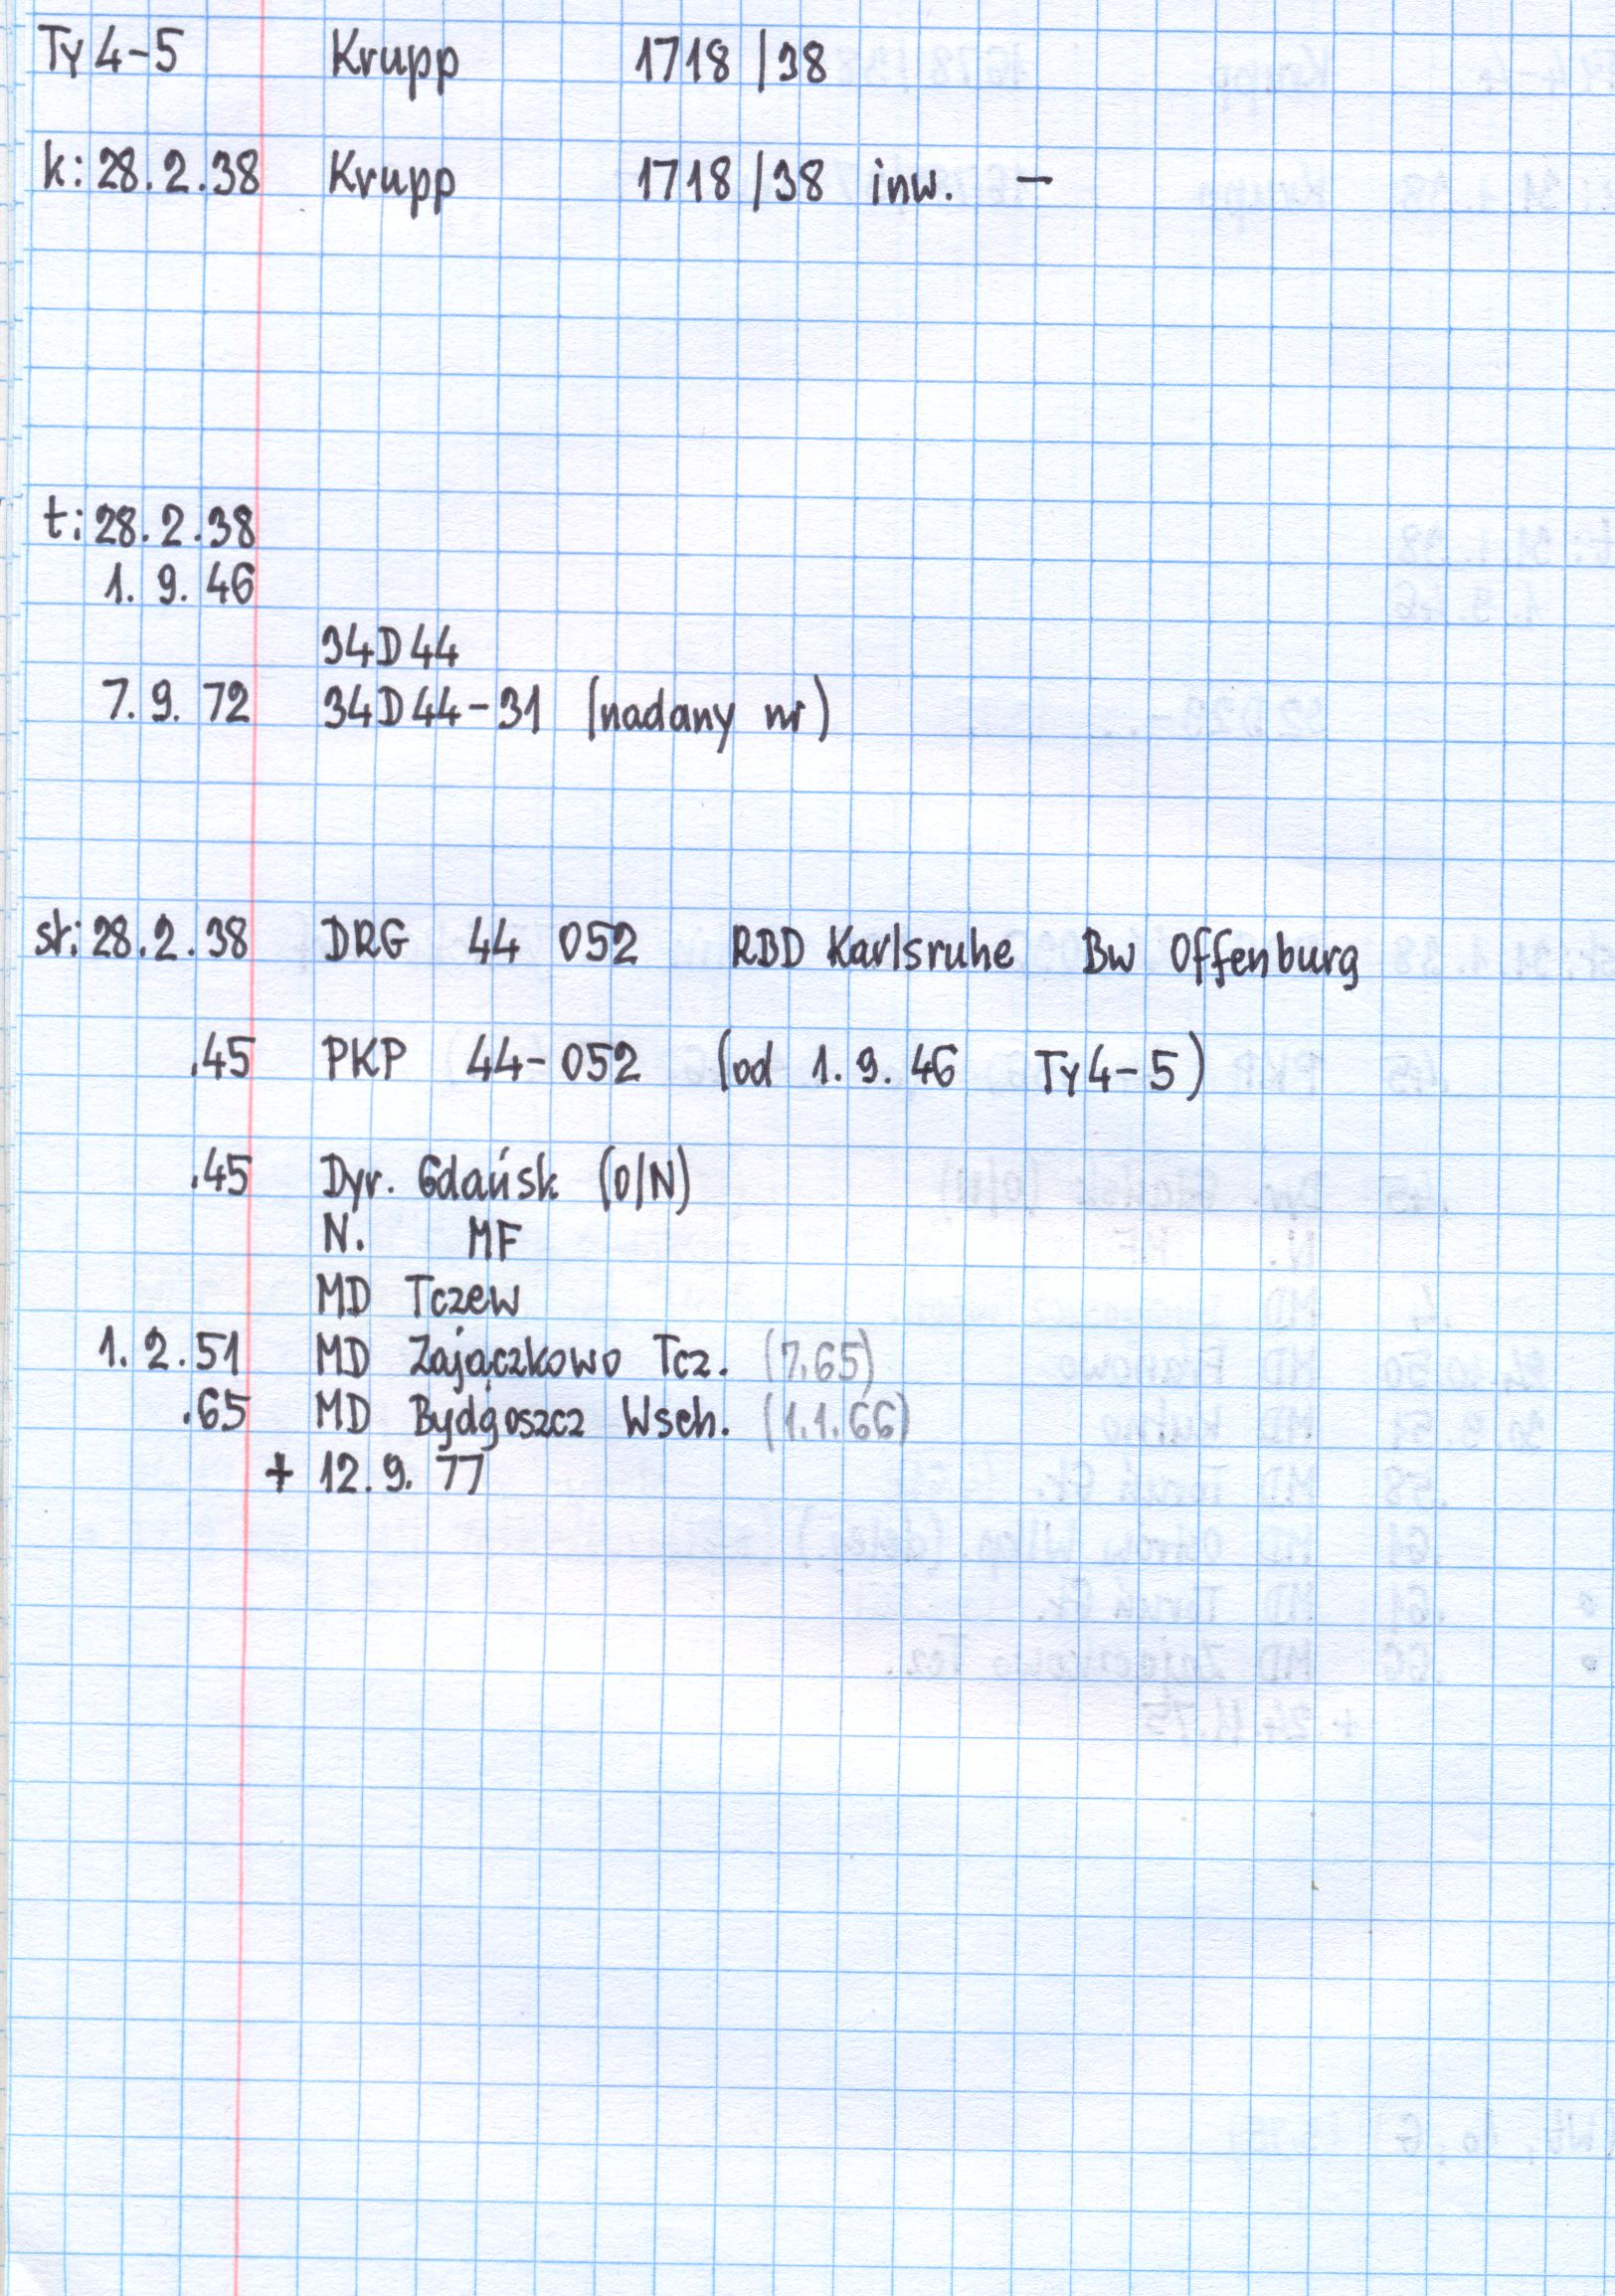 Ty4-5 Krupp 1718/38
k: 28.2.38 Krupp 1718/38 inw. –
t: 28.2.38
1. 9. 46
34D44
7. 9. 72 34D44-31 (nadany nr)
st: 28.2.38 DRG 44 052 RBD Karlsruhe Bw Offenburg
.45 PKP 44-052 (od 1. 9. 46 Ty4-5)
.45 Dyr. Gdańsk (O/N)
N. MF
MD Tczew
1. 2. 51 MD Zajączkowo Tcz. (7.65)
.65 MD Bydgoszcz Wsch. (1.1.66)
+ 12. 9. 77